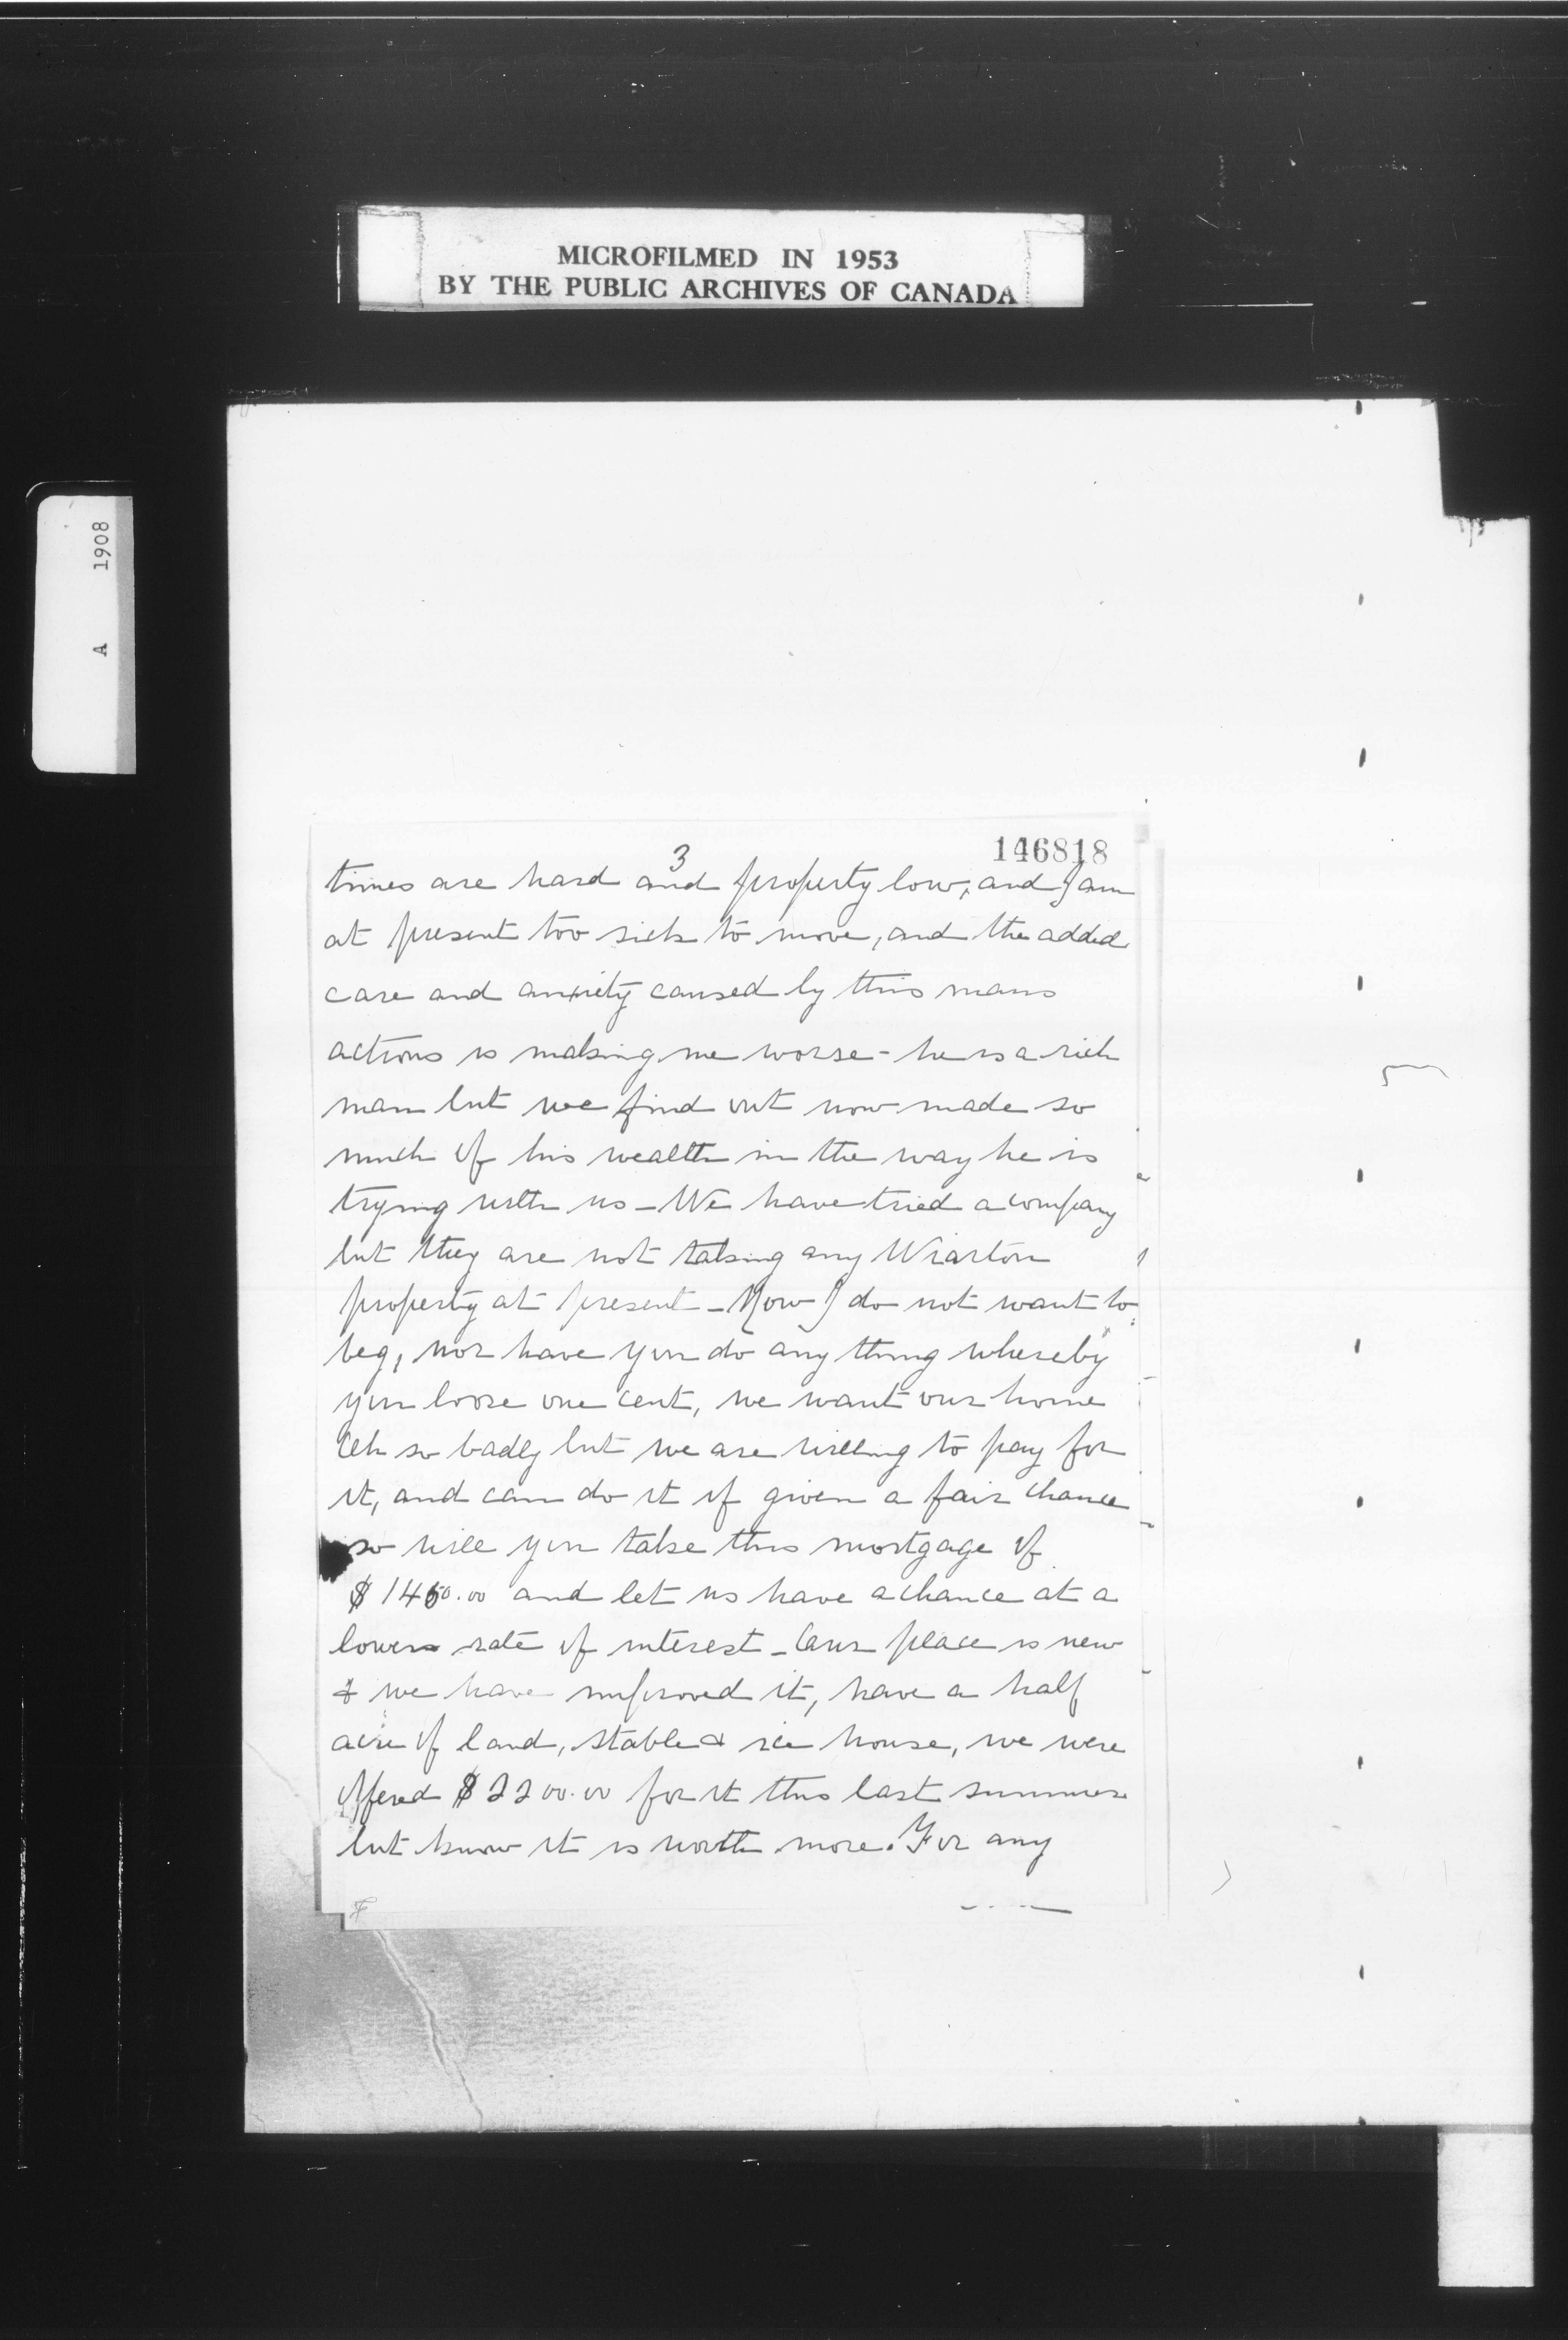 MICROFILMED IN 1953
BY THE PUBLIC ARCHIVES OF CANADA
A 1908
146818
3
times are hard and property low, and I am
at present too sick to move, and the added
care and anxiety caused by this mans
actions is making me worse - he is a rich
man but we find out now made so
much of his wealth in the way he is
trying with us - We have tried a company
but they are not taking any Wiarton
property at present - Now I do not want to
beg, nor have you do any thing whereby
you loose one cent, we want our home
Oh so badly but we are willing to pay for
it, and can do it if given a fair chance
so will you take this mortgage of
$1450.00 and let us have a chance at a
lower rate of interest - Our place is new
& we have improved it, have a half
acre of land, stable & ice house, we were
offered $2200.00 for it this last summer
but know it is worth more. For any